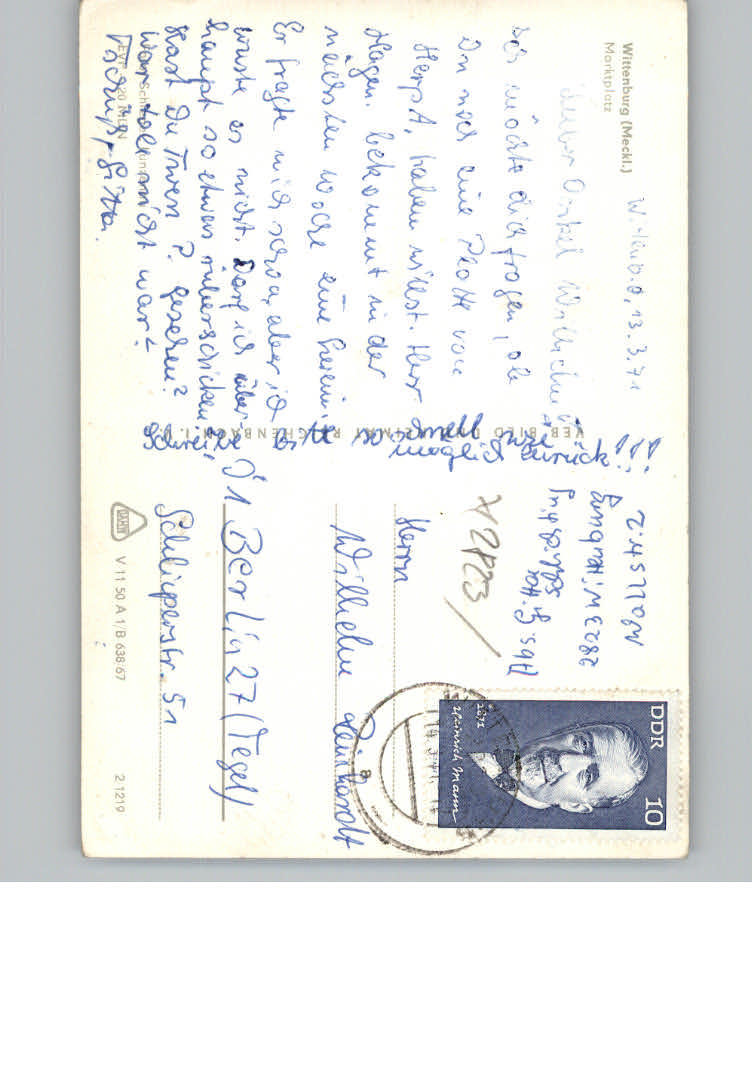 Wittenburg (Meckl.)
Marktplatz
13.3.71
Lieber Onkel Willichen!
Ich möchte dich fragen, ob
Du noch eine Platte von
Herpt, haben willst. Herr
Hagen. bekommt in der
nächsten Woche eine herein.
Er fragte mich schon, aber ich
wuste es nicht. Darf ich über
haupt so etwas rüberschicken
Hast Du Twen P. gesehen?
War toll nicht war?
Tschüß, Gitta.
Schreibe bitte so schnell wie
möglich zurück!!!
VEB BILD UND HEIMAT REICHENBACH I. V.
V 11 50 A 1/B 638/67
2 1219
Abs. G.
2823 Wittenburg
Herrn
Wilhelm Reinhardt
1 Berlin 27 (Tegel)
Schlieperstr. 51
DDR
10
1871
Heinrich Mann